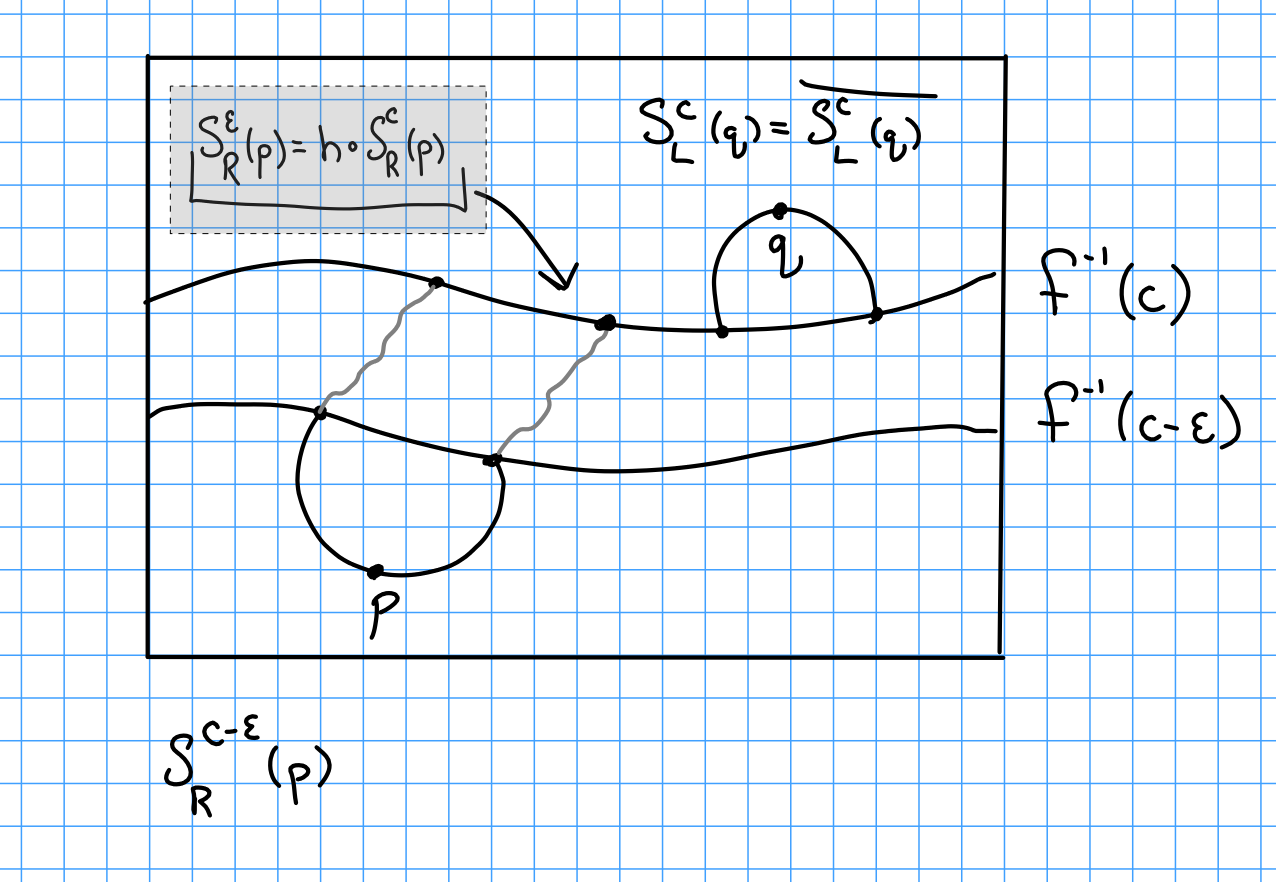 S_R^ε(p) = h∘S_R^c(p)
S_L^c(q) = \overline{S_L^c(q)}
q
f^{-1}(c)
f^{-1}(c-ε)
p
S_R^{c-ε}(p)